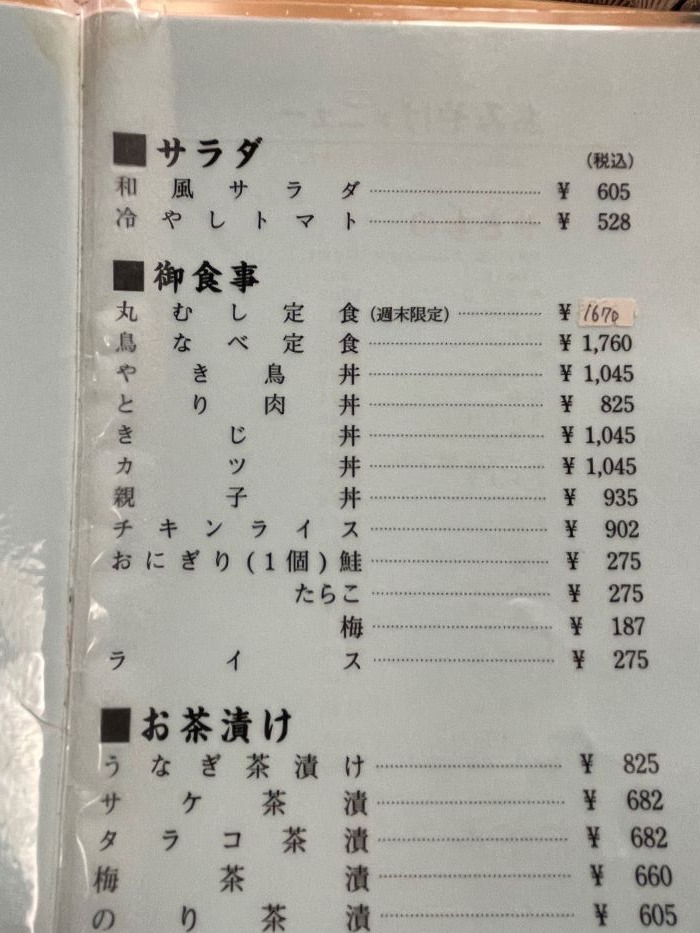 ■サラダ
(税込)
和風サラダ ¥ 605
冷やしトマト ¥ 528
■御食事
丸むし定食(週末限定) ¥ 1670
鳥なべ定食 ¥ 1,760
やき鳥丼 ¥ 1,045
とり肉丼 ¥ 825
きじ丼 ¥ 1,045
カツ丼 ¥ 1,045
親子丼 ¥ 935
チキンライス ¥ 902
おにぎり(1個)鮭 ¥ 275
たらこ ¥ 275
梅 ¥ 187
ライス ¥ 275
■お茶漬け
うなぎ茶漬け ¥ 825
サケ茶漬 ¥ 682
タラコ茶漬 ¥ 682
梅茶漬 ¥ 660
のり茶漬 ¥ 605